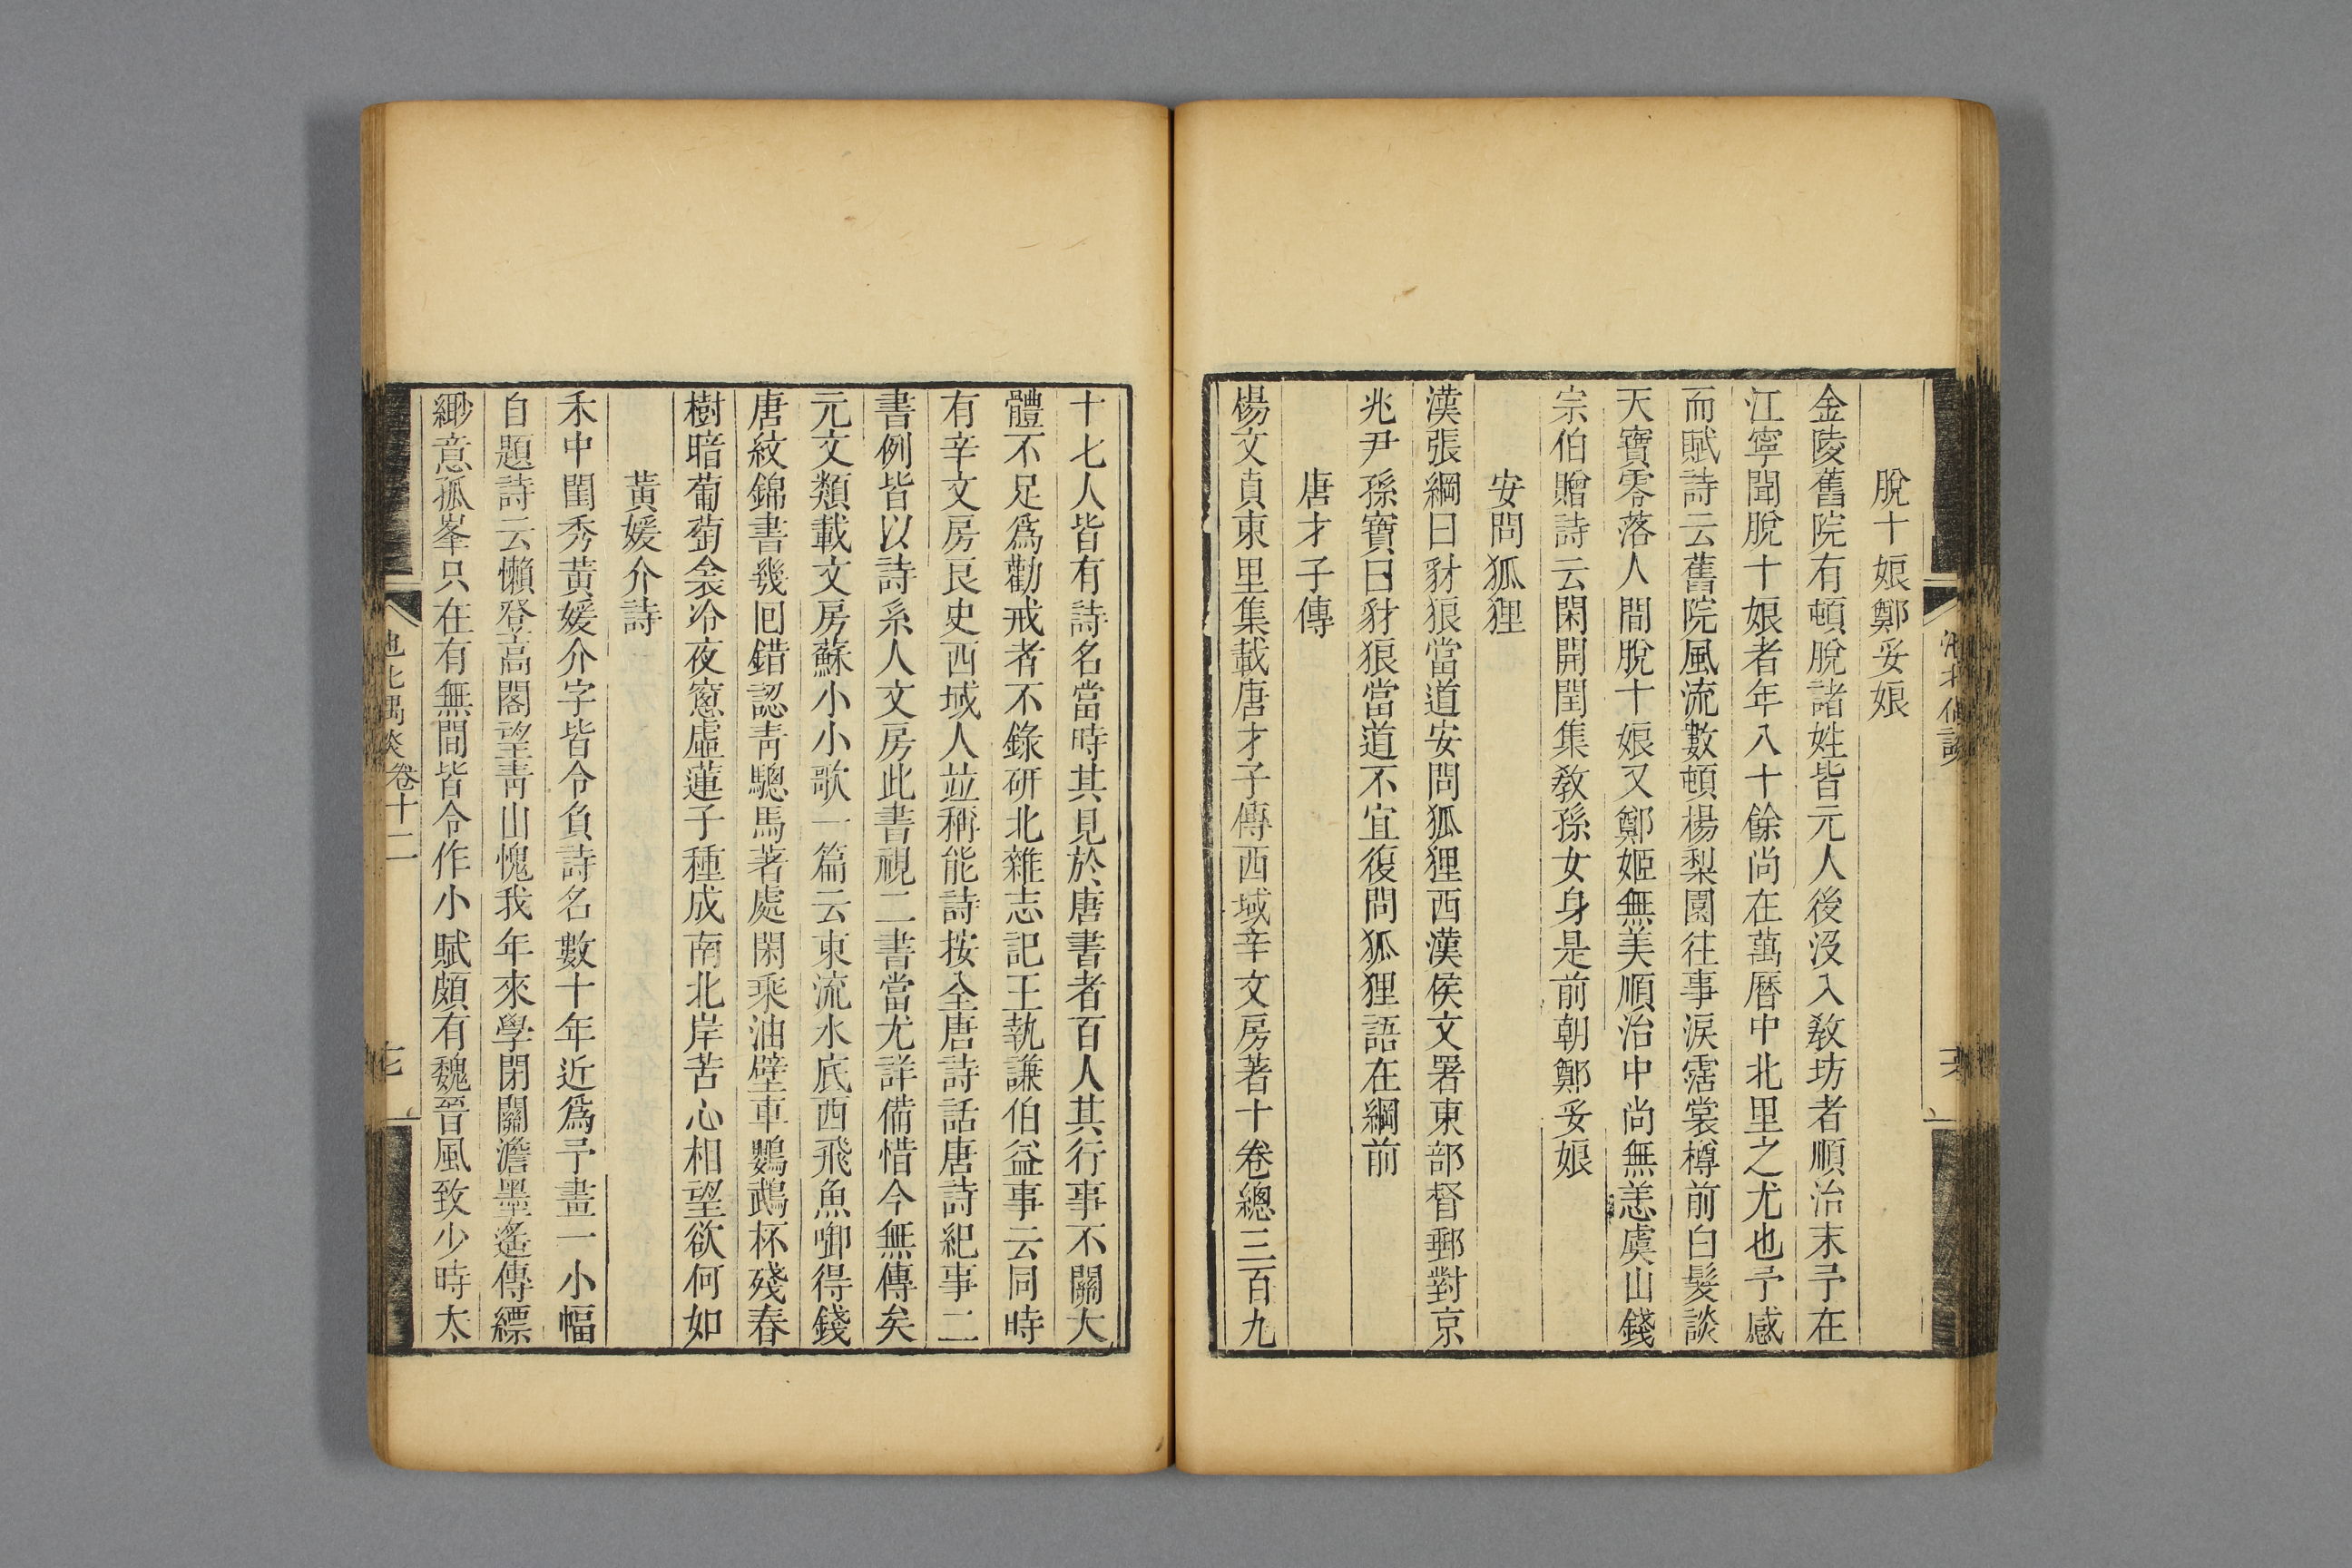 脫十娘鄭妥娘
金陵舊院有頓脫諸姓皆元人後沒入敎坊者順治末予在
江寧聞脫十娘者年八十餘尚在萬曆中北里之尤也予感
而賦詩云舊院風流數頓楊梨園往事淚霑裳樽前白髮談
天寶零落人間脫十娘又鄭姬無美順治中尚無恙虞山錢
宗伯贈詩云閑開閏集敎孫女身是前朝鄭妥娘
安問狐狸
漢張綱曰豺狼當道安問狐狸西漢侯文署東部督郵對京
兆尹孫寶曰豺狼當道不宜復問狐狸語在綱前
唐才子傳
楊文貞東里集載唐才子傳西域辛文房著十卷總三百九
十七人皆有詩名當時其見於唐書者百人其行事不關大
體不足爲勸戒者不錄研北雜志記王執謙伯益事云同時
有辛文房良史西域人並稱能詩按全唐詩話唐詩紀事二
書例皆以詩系人文房此書視二書當尤詳備惜今無傳矣
元文類載文房蘇小小歌一篇云東流水底西飛魚啣得錢
唐紋錦書幾囘錯認靑驄馬著處閑乘油壁車鸚鵡杯殘春
樹暗葡萄衾冷夜窻虛蓮子種成南北岸苦心相望欲何如
黃媛介詩
禾中閨秀黃媛介字皆令負詩名數十年近爲予畫一小幅
自題詩云懶登高閣望靑山愧我年來學閉關澹墨遙傳縹
緲意孤峯只在有無間皆令作小賦頗有魏晉風致少時太
池北偶談 卷十二